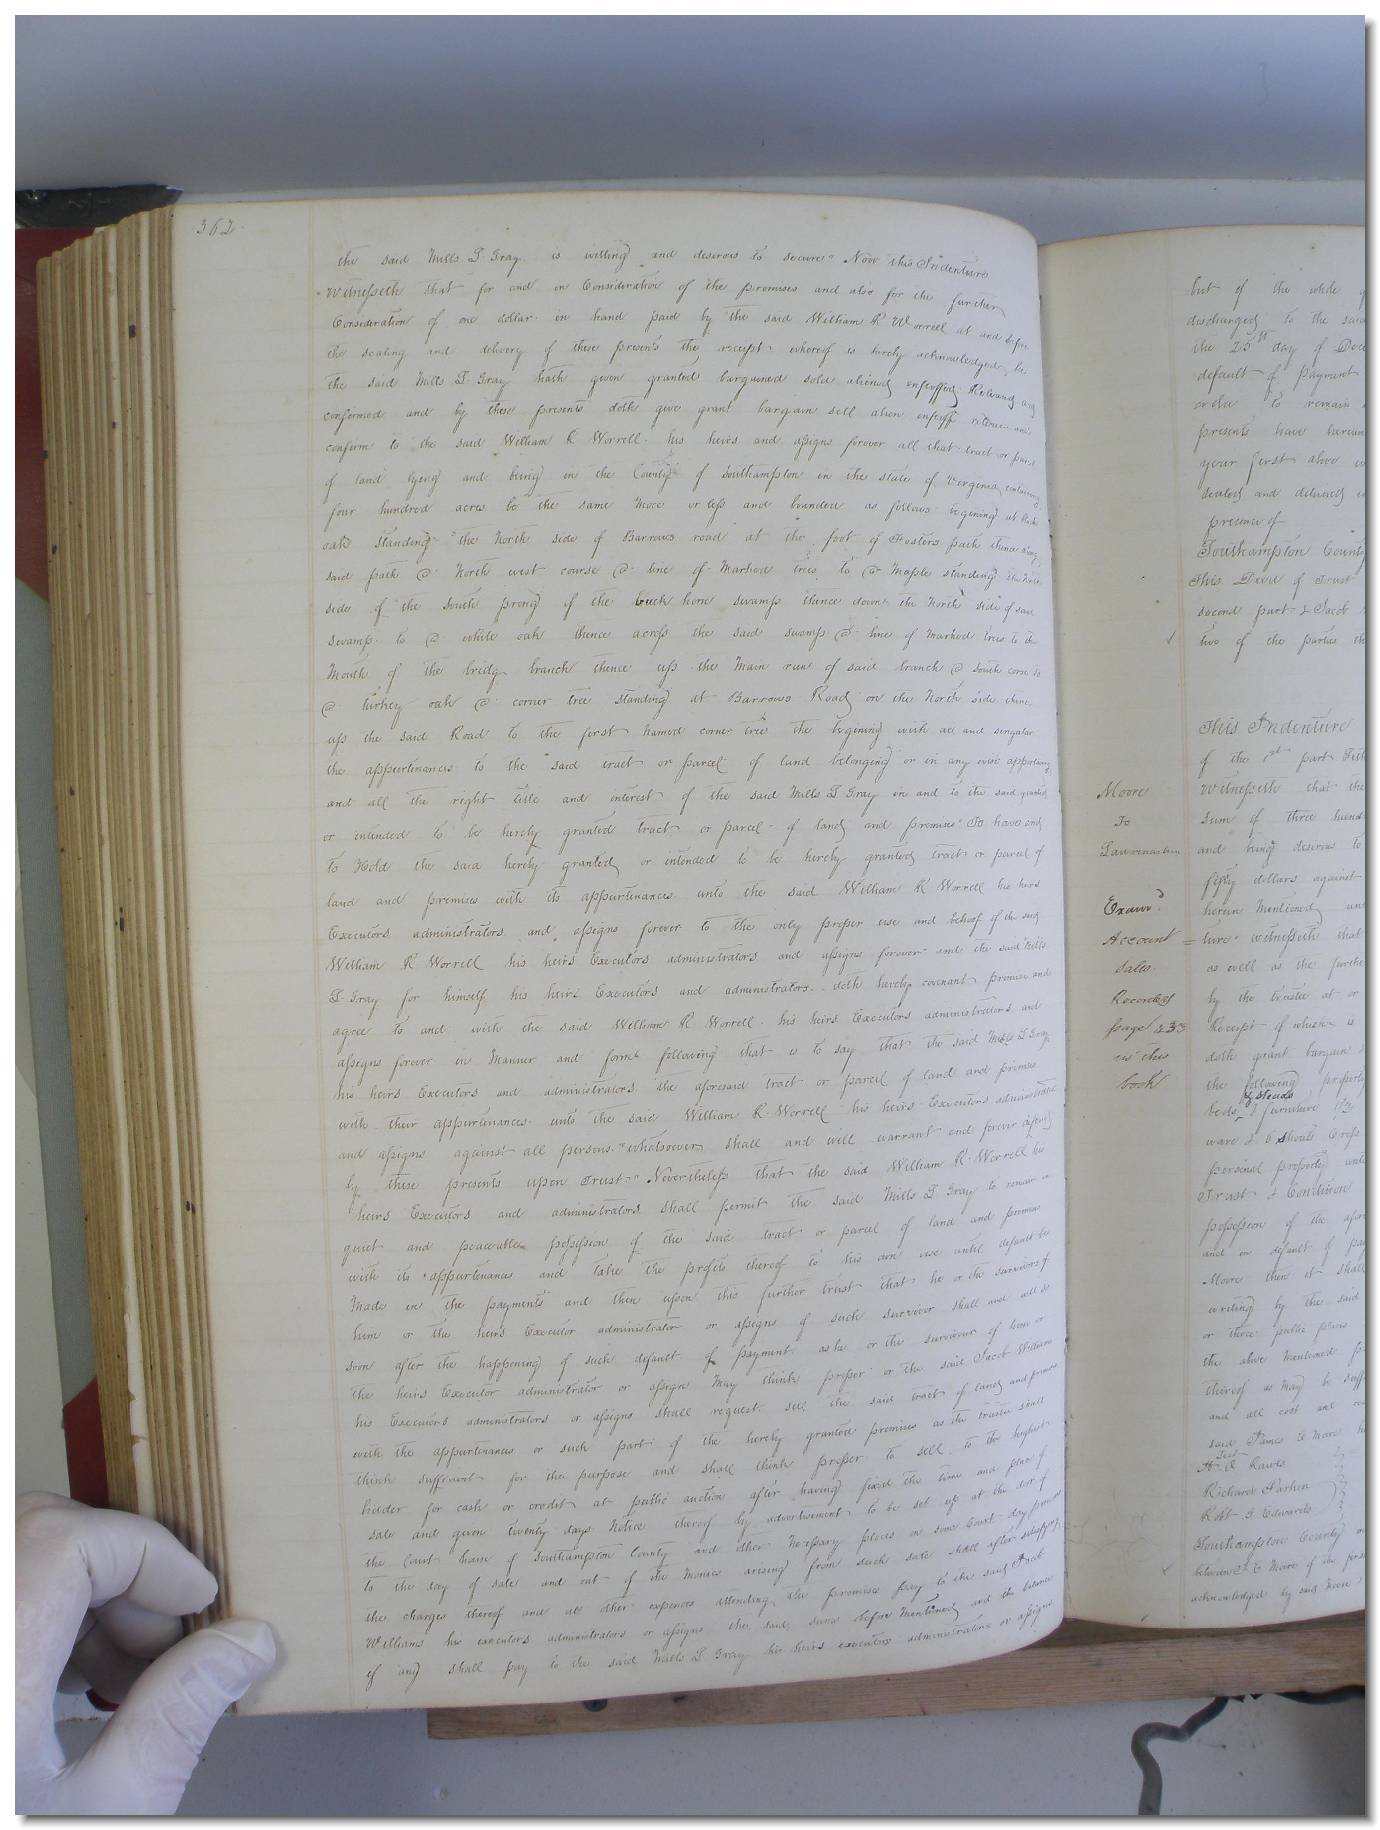 362
the said Mills T Gray is willing and desirous to secure" Now this Indenture
Witnesseth that for and in Consideration of the premises and also for the further
Consideration of one dollar in hand paid by the said William R Worrell at and before
the sealing and delivery of these presents the receipt whereof is hereby acknowledged, he
the said Mills T Gray hath given granted bargained sold aliened enfeoffed Released and
confirmed and by these presents doth give grant bargain sell alien enfeoff release and
confirm to the said William R Worrell his heirs and assigns forever all that tract or parcel
of land lyeng and being in the County of Southampton in the state of Virginia containing
four hundred acres be the same More or less and bounded as follows begining at
oak standing the North side of Barrows road at the foot of Fosters path thence along
said path a North west course a line of Marked trees to a Maple standing the North
side of the South prong of the Buck horn swamp thence down the North side of said
swamp to a white oak thence across the said swamp a line of Marked trees to the
Mouth of the bridg branch thence up the Main run of said branch a South corse to
a turkey oak a corner tree standing at Barrows Road on the North side thence
up the said Road to the first Named corner tree the begining with all and singular
the appurtinances to the said tract or parcel of land belonging or in any wise appertaining
and all the right title and interest of the said Mills T Gray in and to the said granted
or intended to be hereby granted tract or parcel of land and premises" To have and
to Hold the said hereby granted or intended to be hereby granted tract or parcel of
land and premises with its appurtinances unto the said William R Worrell his heirs
Executors administrators and assigns forever to the only proper use and behoof of the said
William R Worrell his heirs Executors administrators and assigns forever" and the said Mills
T Gray for himself his heirs Executors and administrators doth hereby covenant promise and
agree to and with the said William R Worrell his heirs Executors administrators and
assigns forever in Manner and form following that is to say that the said Mills T Gray
his heirs Executors and administrators the aforesaid tract or parcel of land and premises
with their appurtinances unto the said William R Worrell his heirs Executors administrators
and assigns against all persons whatsoever shall and will warrant and forever defend
by these presents upon Trust" Nevertheless that the said William R Worrell his
heirs Executors and administrators shall permit the said Mills T Gray to remain in
quiet and peaceable possession of the said tract or parcel of land and premises
with its appurtinances and take the profits thereof to his own use until default be
Made in the payments and then upon this further trust that he or the survivors of
him or the heirs Executor administrator or assigns of such survivor shall and will so
soon after the happening of such default of payment as he or the survivour of him or
the heirs Executor administrator or assigns May think proper or the said Jacob William
his Executors administrators or assigns shall request sell the said tract of land and premises
with the appurtinances or such part of the hereby granted premises as the trustee shall
think sufficient for the purpose and shall think proper to sell to the highest
bidder for cash or credit at public auction after having fixed the time and place of
sale and given twenty days Notice thereof by advertisement to be set up at the dor of
the Court house of Southampton County and other Necessary places on some Court day previous
to the day of sale and out of the Monies arising from such sale shall after satisfying
the charges thereof and all other expences attending the premises pay to the said Jacob
Williams his executors administrators or assigns the said sums before Mentioned and the balance
if any shall pay to the said Mills T Gray his heirs executors administrators or assigns
but of the whole
discharged to the said
the 25th day of Dec
default of payment
order to remain
presents have hereun
year first above
sealed and delivered
presence of
Southampton County
This Deed of Trust
second part & Jacob
two of the parties
Moore
To
Lawrence
Examd
Account
sales
Recorded
page 433
in this
book
This Indenture
of the 1st part
Witnesseth that the
sum of three hund
and being desirous to
fifty dollars against
herein Mentioned
ture witnesseth that
as well as the further
by the trustee at or
Receipt of which is
doth grant bargain
the following property
& steads
beds & furniture
ware & 6 Shoats
personal property
Trust & Condition
possession of the afore
and in default of pay
Moore then it shall
writing by the said
or three public places
the above Mentioned
thereof as May be suff
and all cost and
said James E Moore
Test
Richard Parker
Robt. G Edwards
Southampton County
between E Moore of the first
acknowledged by said Moore